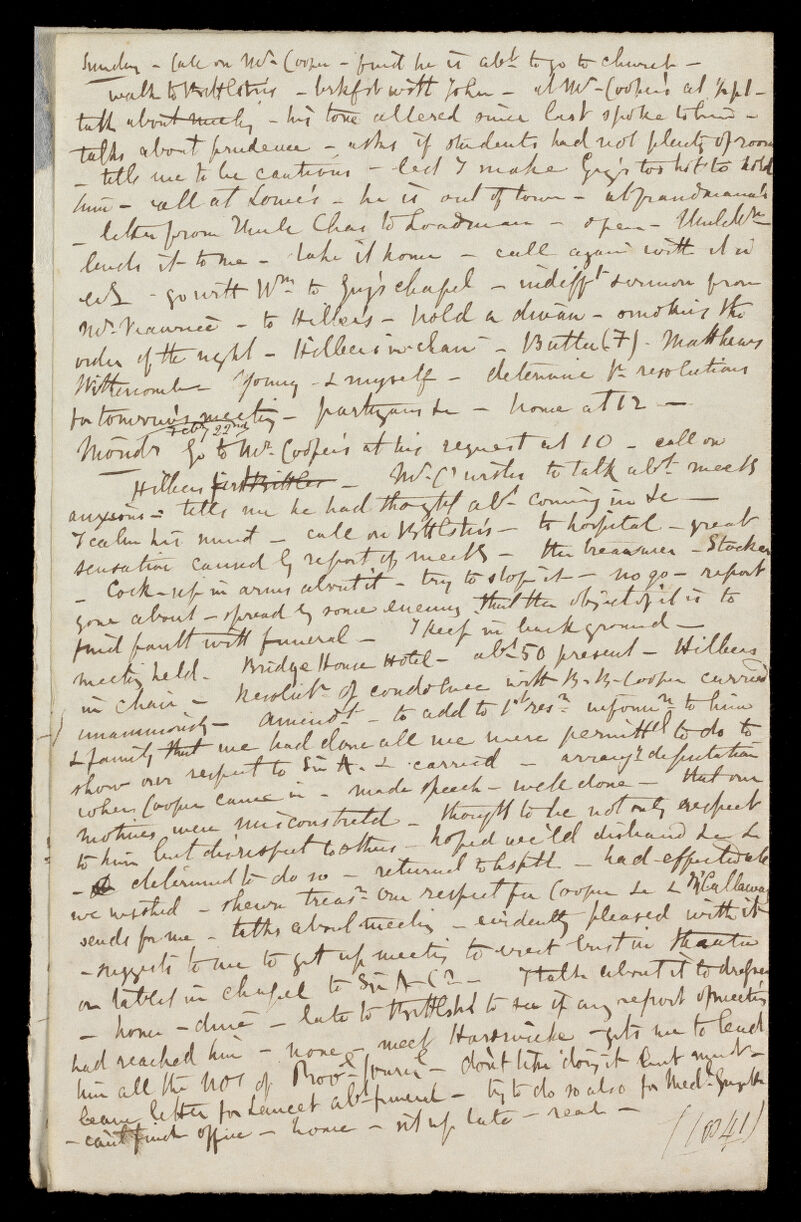 Sunday - Call on Mr. Cooper - find he is abt. to go to church -
walk to - brkfst with John - at Mr. Cooper's at ½ pt 1 -
talk about meetg - his tone altered since last spoke to him -
talks about prudence - asks if students had not plenty of room
- tells me to be cautious - lest I make Guy's too hot to hold
him - call at Lowe's - he is out of town - at grandmama's
- letter from Uncle Chas to Loadman - open - Uncle Wm
lends it to me - take it home - call again with it in
evg - go with Wm. to Guy's chapel - indifft. sermon from
Mr. - to Hilbers - hold a divan - smoking the
order of the night - Hilbers in chair - Butler (F) - Matthews
Young - & myself - determine 1st resolutions
for tomorrow's meeting - partyans &c - home at 12 -
Monday Feby 22nd Go to Mr. Cooper's at his request at 10 - call on
Hilbers first - Mr. C. wishes to talk abt. meetg
anxious - tells me he had thought abt. coming in &c -
I calm his mind - call on - to hospital - great
sensation caused by report of meetg - the treasurer - Stocker
- Cock - up in arms about it - try to stop it - no go - report
gone about - spread by some enemy that the object of it is to
find fault with funeral - I keep in back ground -
meeting held - Bridge House Hotel - abt. 50 present - Hilbers
in chair - Resolutn. of condolence with B. B. Cooper carried
unanimously - amendt. - to add to 1st resn. informn. to him
& family that we had done all we were permittd to do to
show our respect to Sir A. & carried - arrangd deputation
when Cooper came in - made speech - well done - that our
motives were misconstrued - thought to be not only respect
to him but disrespect to others - hoped we'ld disband &c &
- determined to do so - returned to hsptl - had effected all
we wished - shewn treasr. our respect for Cooper &c & Mr Callaway
sends for me - talks about meeting - evidently pleased with it
- suggests to me to get up meeting to erect bust in theatre
or tablet in chapel to Sir A. C? - I talk about it to dressers
- home - dine - late to to see if any report of meeting
had reached him - none - meet Hardwicke - gets me to lend
him all the nos of Provl. Journl - don't like doing it but must -
leave letter for Lancet abt. funeral - try to do so also for Medl. Gazette
- can't find office - home - sit up late - read -
(1841)